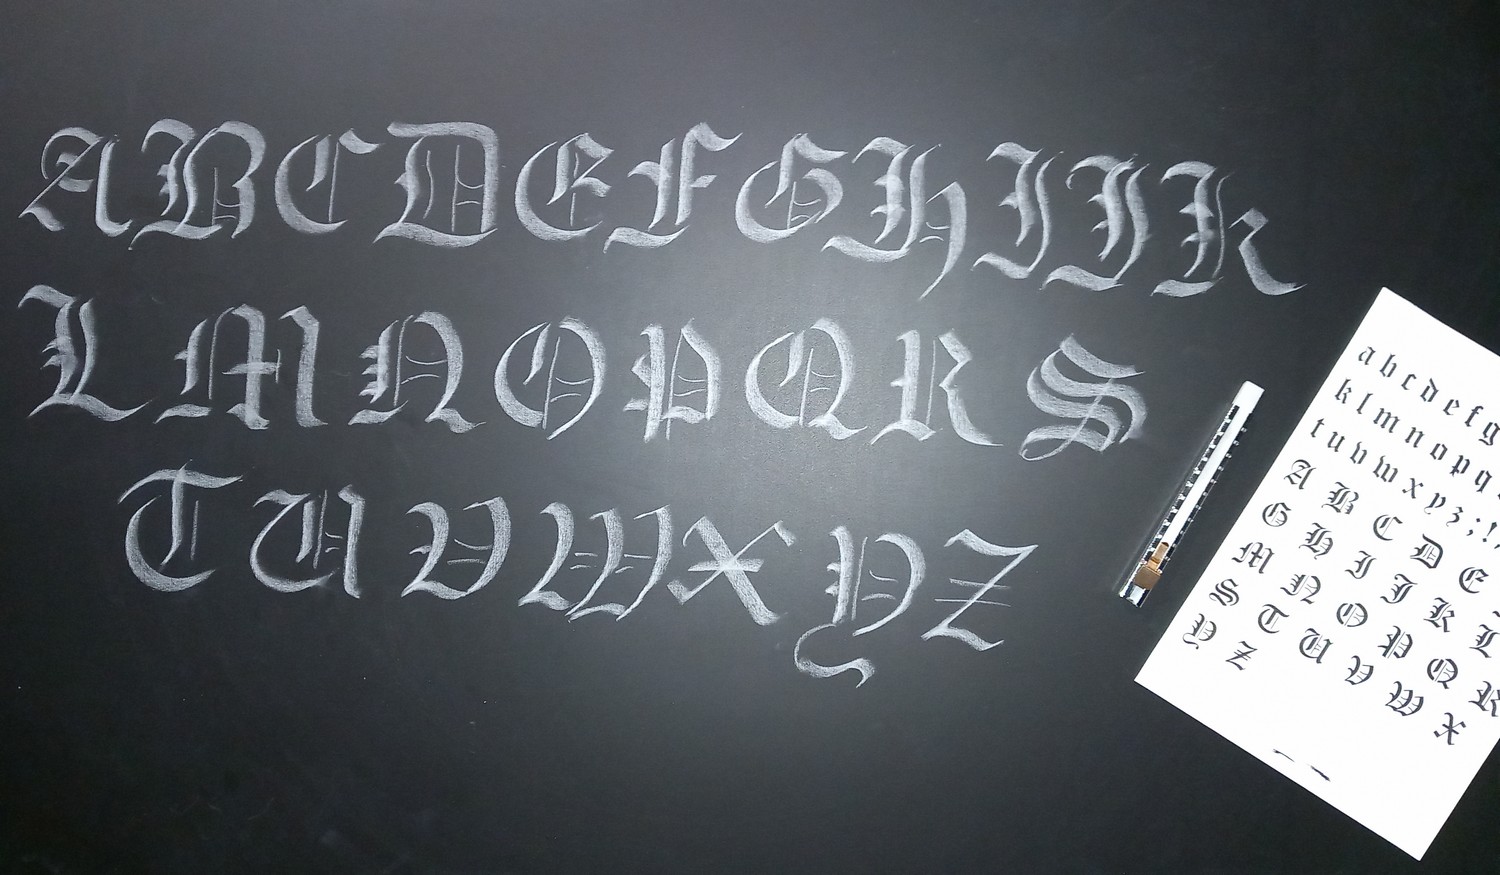 ABCDEFGHIJK
LMNOPQRS
TUVWXYZ
a b c d e f g
k l m n o p q
t u v w x y z ; ! ,
A B C D E
G H I J K L
M N O P Q R
S T U V W X
Y Z